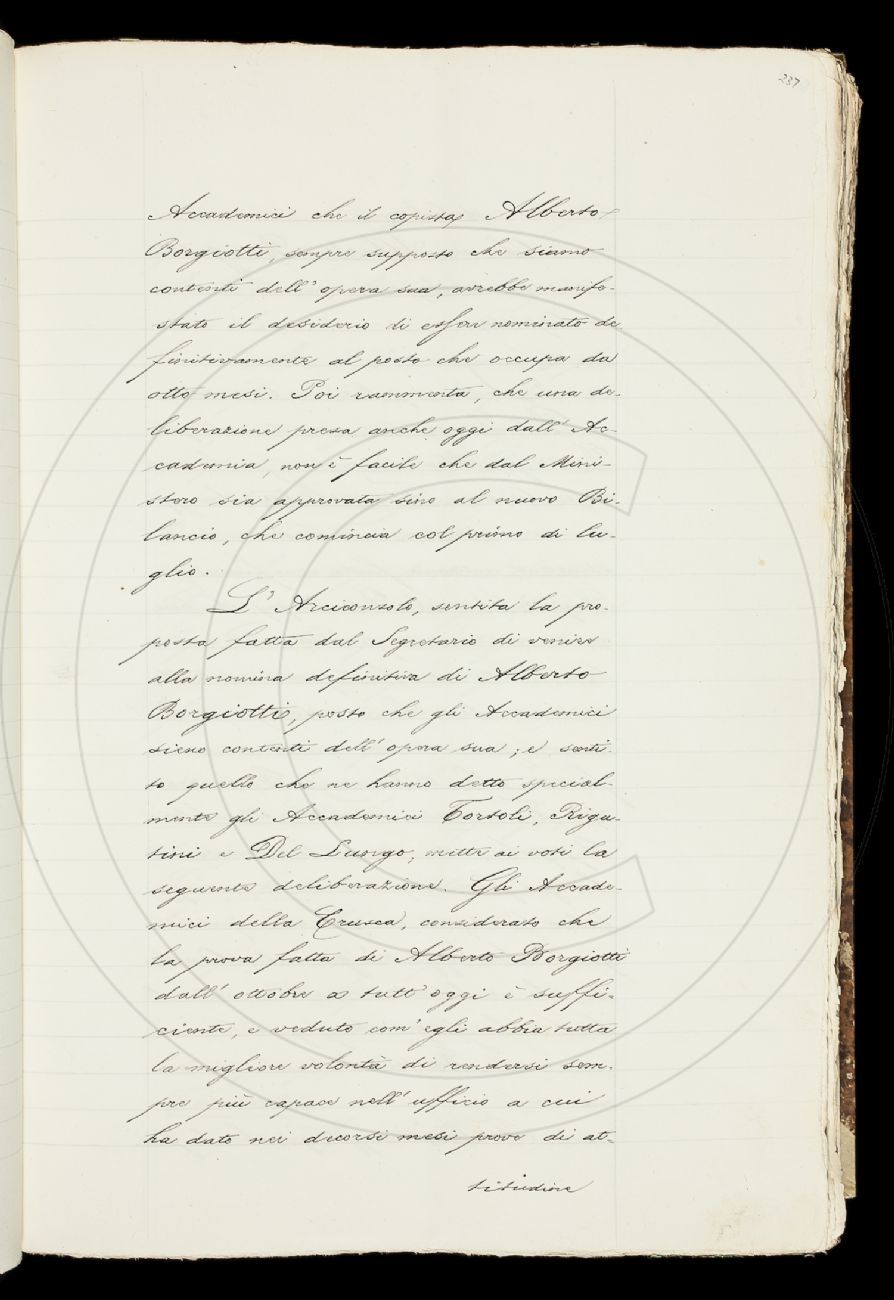 337
Accademici che il copista Alberto
Borgiotti, sempre supposto che siamo
contenti dell'opera sua, avrebbe manife-
stato il desiderio di esser nominato de
finitivamente al posto che occupa da
otto mesi. Poi rammenta, che una de-
liberazione presa anche oggi dall'Ac-
cademia, non è facile che dal Mini-
stero sia approvata sino al nuovo Bi-
lancio, che comincia col primo di lu-
glio.
L'Arciconsolo, sentita la pro-
posta fatta dal Segretario di venire
alla nomina definitiva di Alberto
Borgiotti, posto che gli Accademici
sieno contenti dell'opera sua; e senti-
to quello che ne hanno detto special-
mente gli Accademici Tortoli, Rigu-
tini e Del Lungo, mette ai voti la
seguente deliberazione. Gli Accade-
mici della Crusca, considerato che
la prova fatta di Alberto Borgiotti
dall'ottobre a tutt'oggi è suffi-
ciente, e veduto com'egli abbia tutta
la migliore volontà di rendersi sem-
pre più capace nell'ufficio a cui
ha dato nei decorsi mesi prove di at-
titudine